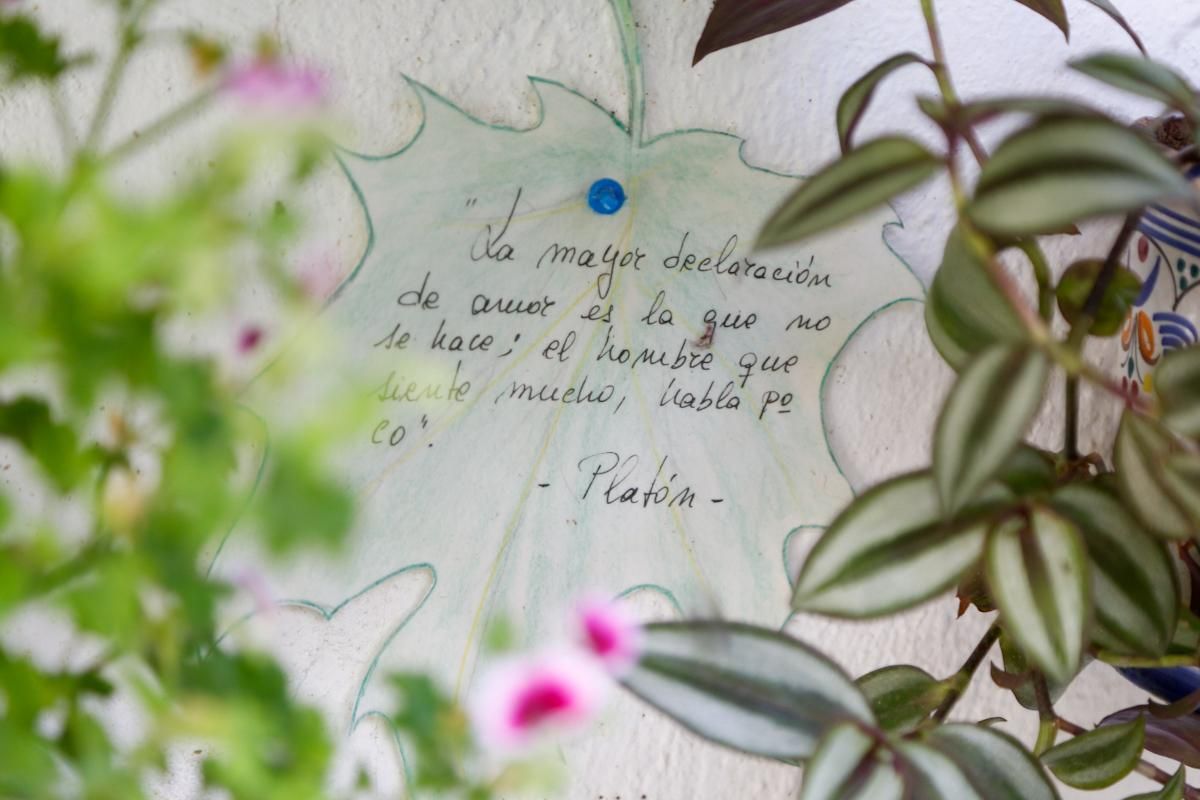 "La mayor declaración
de amor es la que no
se hace; el hombre que
siente mucho, habla po
co".
- Platón -